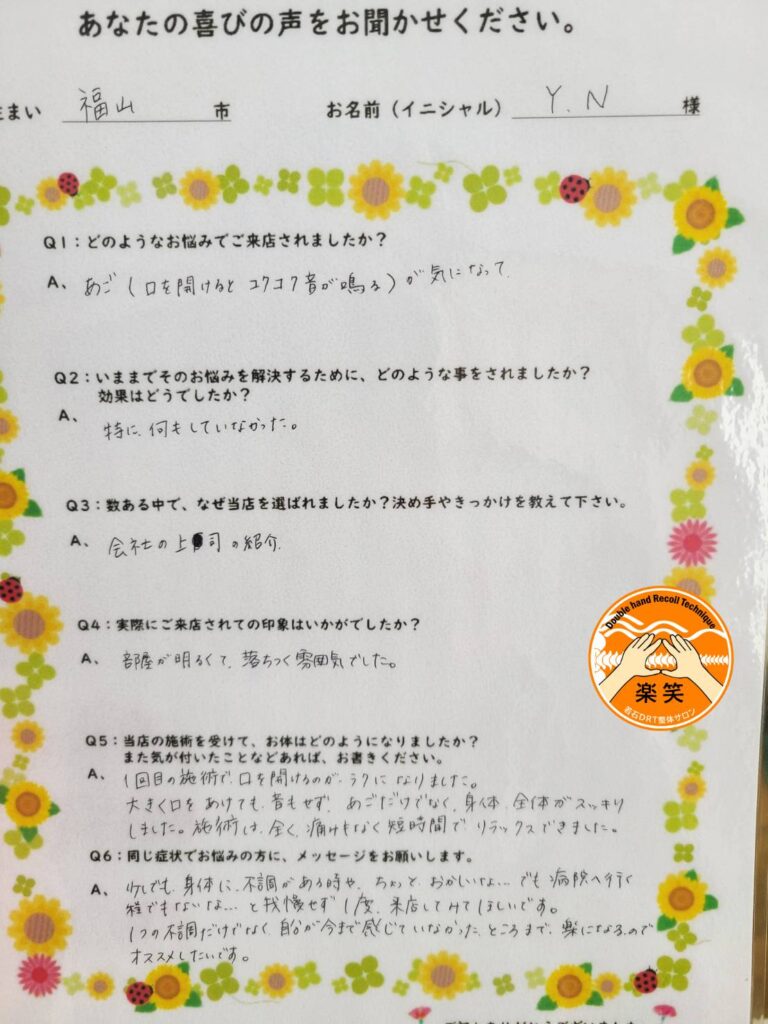 あなたの喜びの声をお聞かせください。
まい 福山 市 お名前（イニシャル） Y.N 様
Q1：どのようなお悩みでご来店されましたか？
A、 あご（口を開けると コクコク音が鳴る）が気になって
Q2：いままでそのお悩みを解決するために、どのような事をされましたか？
効果はどうでしたか？
A、 特に、何もしていなかった。
Q3：数ある中で、なぜ当店を選ばれましたか？決め手やきっかけを教えて下さい。
A、 会社の上司の紹介
Q4：実際にご来店されての印象はいかがでしたか？
A、 部屋が明るくて、落ちつく雰囲気でした。
Q5：当店の施術を受けて、お体はどのようになりましたか？
また気が付いたことなどあれば、お書きください。
A、 1回目の施術で、口を開けるのが、ラクになりました。
大きく口をあけても、音もせず、あごだけでなく、身体、全体がスッキリ
しました。施術は、全く、痛けもなく短時間で リラックスできました。
Q6：同じ症状でお悩みの方に、メッセージをお願いします。
A、 少しでも、身体に、不調がある時や、ちょっと、おかしいな…でも病院へ行く
程でもないな…と我慢せず1度、来店してみてほしいです。
1つの不調だけでなく、自分が今まで感じていなかった、ところまで、楽になるので
オススメしたいです。
Double hand Recoil Technique
楽笑
若石DRT整体サロン